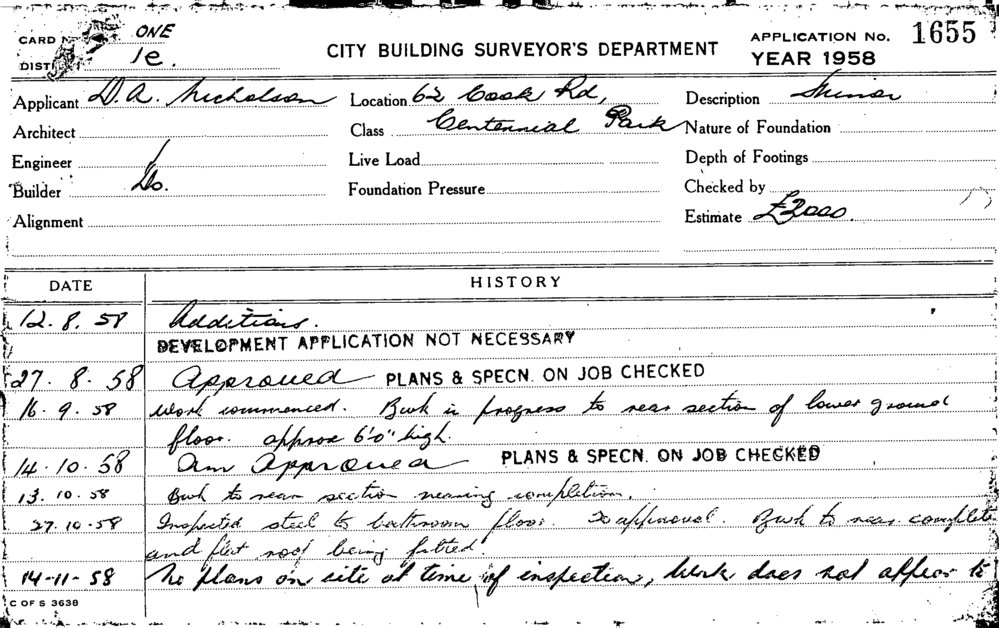 CARD No. ONE
DIST 1e.
CITY BUILDING SURVEYOR'S DEPARTMENT
APPLICATION No. 1655
YEAR 1958
Applicant D. A. Nicholson Location 62 Cook Rd, Description Minor
Architect Class Centennial Park Nature of Foundation
Engineer Live Load Depth of Footings
Builder Do. Foundation Pressure Checked by
Alignment Estimate £2000.
DATE HISTORY
12. 8. 58 Additions.
DEVELOPMENT APPLICATION NOT NECESSARY
27. 8. 58 Approved PLANS & SPECN. ON JOB CHECKED
16. 9. 58 Work commenced. Bwk in progress to rear section of lower ground
floor. approx 6'0" high.
14. 10. 58 Am Approved PLANS & SPECN. ON JOB CHECKED
13. 10. 58 Bwk to rear section nearing completion.
27. 10. 58 Inspected steel to bathroom floor. To approval. Bwk to rear complete
and flat roof being fitted.
14-11-58 No plans on site at time of inspection, Work does not appear to
C OF S 3638